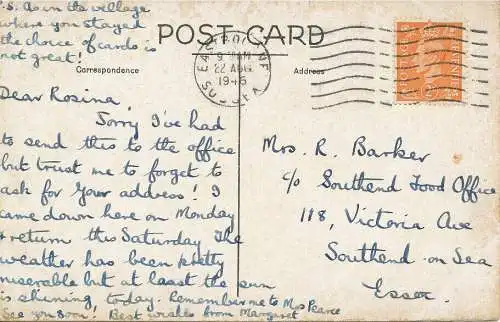 P.S. As in the village
where you stayed
the choice of cards is
not great!
POST CARD
Correspondence
Address
EASTBOURNE
9 15 AM
22 AUG
1946
SUSSEX
Dear Rosina,
Sorry I've had
to send this to the office
but trust me to forget to
ask for your address! I
came down here on Monday
& return this Saturday The
weather has been pretty
miserable but at least the sun
is shining today. Remember me to Mrs Pearce
See you soon! Best wishes from Margaret
Mrs. R. Barker
c/o Southend Food Office
118, Victoria Ave
Southend-on-Sea
Essex.